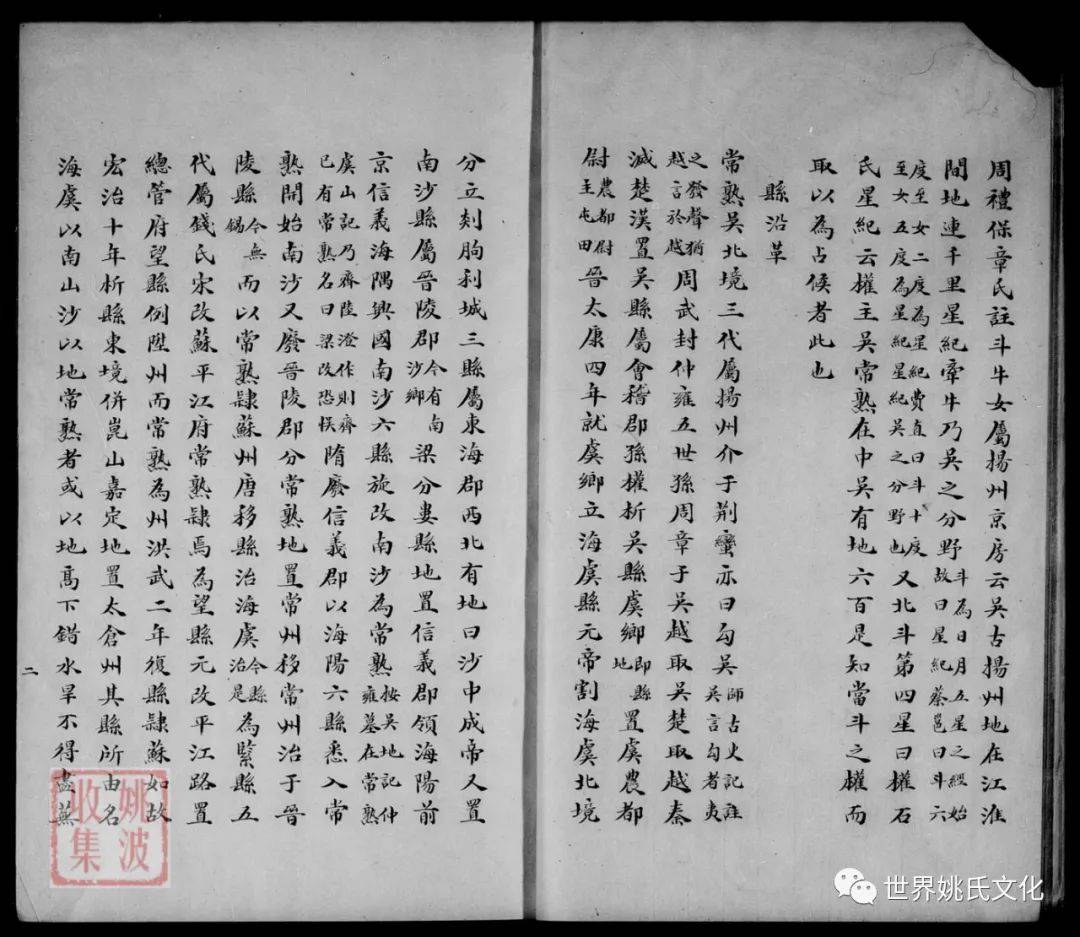 周禮保章氏註斗牛女屬揚州京房云吳古揚州地在江淮
間地連千里星紀牽牛乃吳之分野斗為日月五星之經始故曰星紀蔡邕曰斗六
度至女二度為星紀費直曰斗十度至女五度為星紀星紀吳之分野也又北斗第四星曰權石
氏星紀云權主吳常熟在中吳有地六百是知當斗之權而
取以為占候者此也
縣沿革
常熟吳北境三代屬揚州介于荆蠻亦曰勾吳師古史記註吳言勾者夷
之發聲猶越言於越周武封仲雍五世孫周章于吳越取吳楚取越秦
滅楚漢置吳縣屬會稽郡孫權析吳縣虞鄉即縣地置虞農都
尉農都尉主屯田晉太康四年就虞鄉立海虞縣元帝割海虞北境
分立剡朐利城三縣屬東海郡西北有地曰沙中成帝又置
南沙縣屬晉陵郡今有南沙鄉梁分婁縣地置信義郡領海陽前
京信義海隅興國南沙六縣旋改南沙為常熟按吳地記仲雍墓在常熟
虞山記乃齊陸澄作則齊已有常熟名曰梁改恐悞隋廢信義郡以海陽六縣悉入常
熟開始南沙又廢晉陵郡分常熟地置常州移常州治于晉
陵縣今無錫而以常熟隸蘇州唐移縣治海虞今縣治是為緊縣五
代屬錢氏宋改蘇平江府常熟隸焉為望縣元改平江路置
總管府望縣例陞州而常熟為州洪武二年復縣隸蘇如故
宏治十年析縣東境併崑山嘉定地置太倉州其縣所由名
海虞以南山沙以地常熟者或以地高下錯水旱不得盡蕪
二
姚波
收集
世界姚氏文化